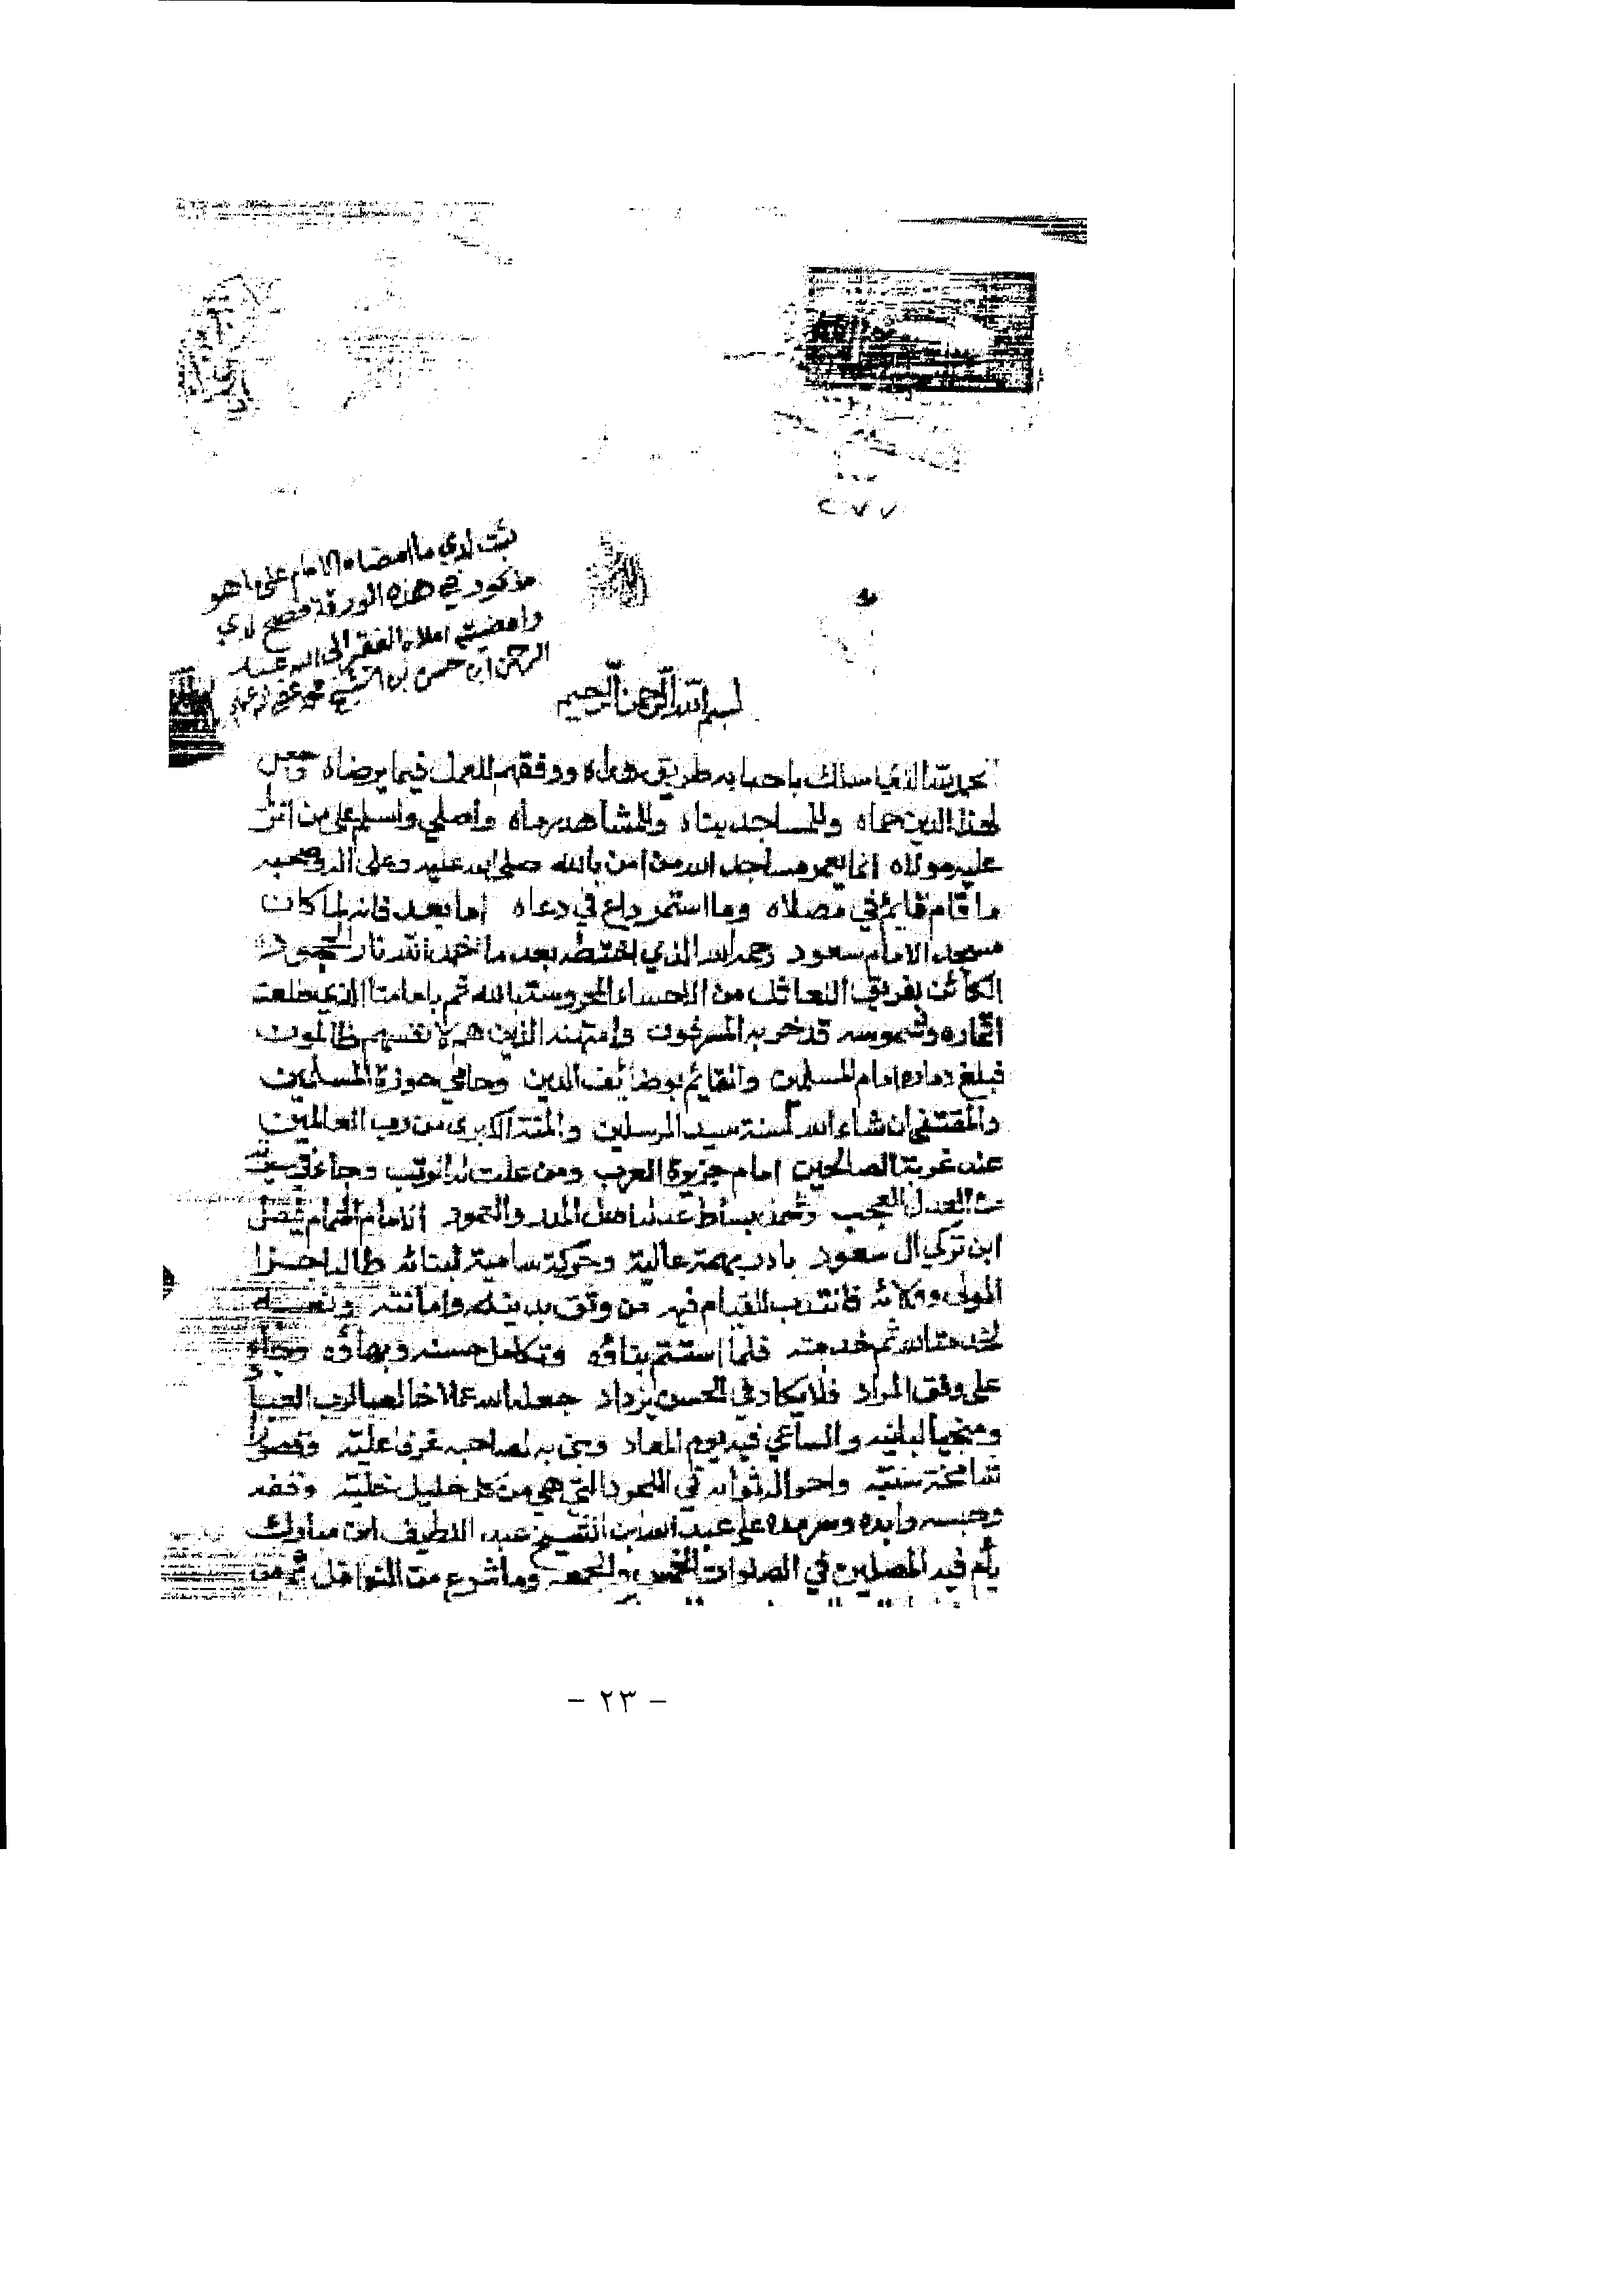 ٢٧٧
ثبت لدي ما امضاه الامام على ما هو
مذكور في هذه الورقة فصح لدي
وامضيته املاه الفقير الى الله عبد
الرحمن ابن حسن بن الشيخ محمد عفي عنه
بسم الله الرحمن الرحيم
الحمد لله الذي سلك باحبابه طريق هداه ووفقهم للعمل فيما يرضاه وجعل
لهذا الدين حماه وللمساجد بناه وللمشاهد رماه واصلي واسلم على من انزل
عليه مولاه انما يعمر مساجد الله من امن بالله صلى الله عليه وعلى اله وصحبه
ما قام قايم في مصلاه وما استمر داع في دعاه اما بعد فانه لما كان
مسجد الامام سعود رحمه الله الذي اختطه بعد ما اخمد الله نار
الكائن بفريق النعاثل من الاحساء المحروسة بالله ثم بامامنا الذي طلعت
اقماره وشموسه قد خربه المسرفون وامتهنه الذين هم لانفسهم ظالمون
فبلغ دماره امام المسلمين والقايم بوضائف الدين وحامي حوزة المسلمين
والمقتفي ان شاء الله لسنة سيد المرسلين والمنة الكبرى من رب العالمين
عند غربة الصالحين امام جزيرة العرب ومن علت له الرتب وجاء في سيرته
من العدل العجب وشمل بساط عدله اهل المدر والعمود الامام الهمام فيصل
ابن تركي ال سعود بادر بهمة عالية وحركة سامية لبنائه طالبا جزا
المولى وولائه فانتدب للقيام فيه من وثق بدينه وامانته ونصبه
لخدمة الله ثم خدمته فلما استتم بناؤه وتكامل حسنه وبهاؤه وجاء
على وفق المراد فلا يكاد في الحسن يزداد جعله الله عملا خالصا لرب العباد
ومنجيا لبانيه والساعي فيه يوم المعاد وبنى به لصاحبه غرفا علية وقصورا
شامخة سنية واجرا له ثوابه في اللحود التي هي من كل خليل خلية وقفه
وحبسه وابده وسرمده على عبد الله بن الشيخ عبد اللطيف ابن مبارك
يأم فيه المصلين في الصلوات الخمس والجمعه وما شرع من النوافل ثم من
- ٢٣ -